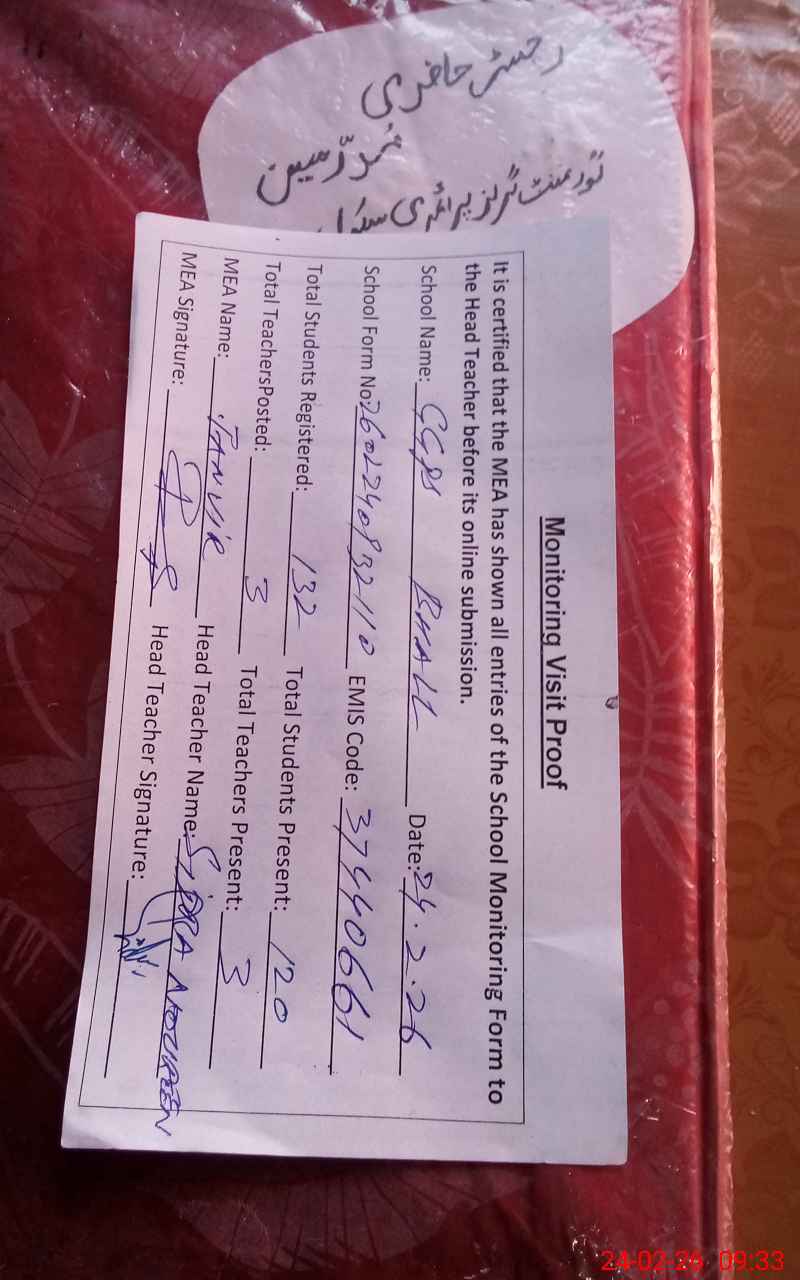 رجسٹر حاضری
مدرسین
گورنمنٹ گرلز پرائمری سکول
Monitoring Visit Proof
It is certified that the MEA has shown all entries of the School Monitoring Form to
the Head Teacher before its online submission.
School Name: GGPS BHALL Date: 24.2.26
School Form No: 2602240932110 EMIS Code: 37440661
Total Students Registered: 132 Total Students Present: 120
Total TeachersPosted: 3 Total Teachers Present: 3
MEA Name: TANVIR Head Teacher Name: SIDRA NOUREEN
MEA Signature: Head Teacher Signature:
24-02-26 09:33